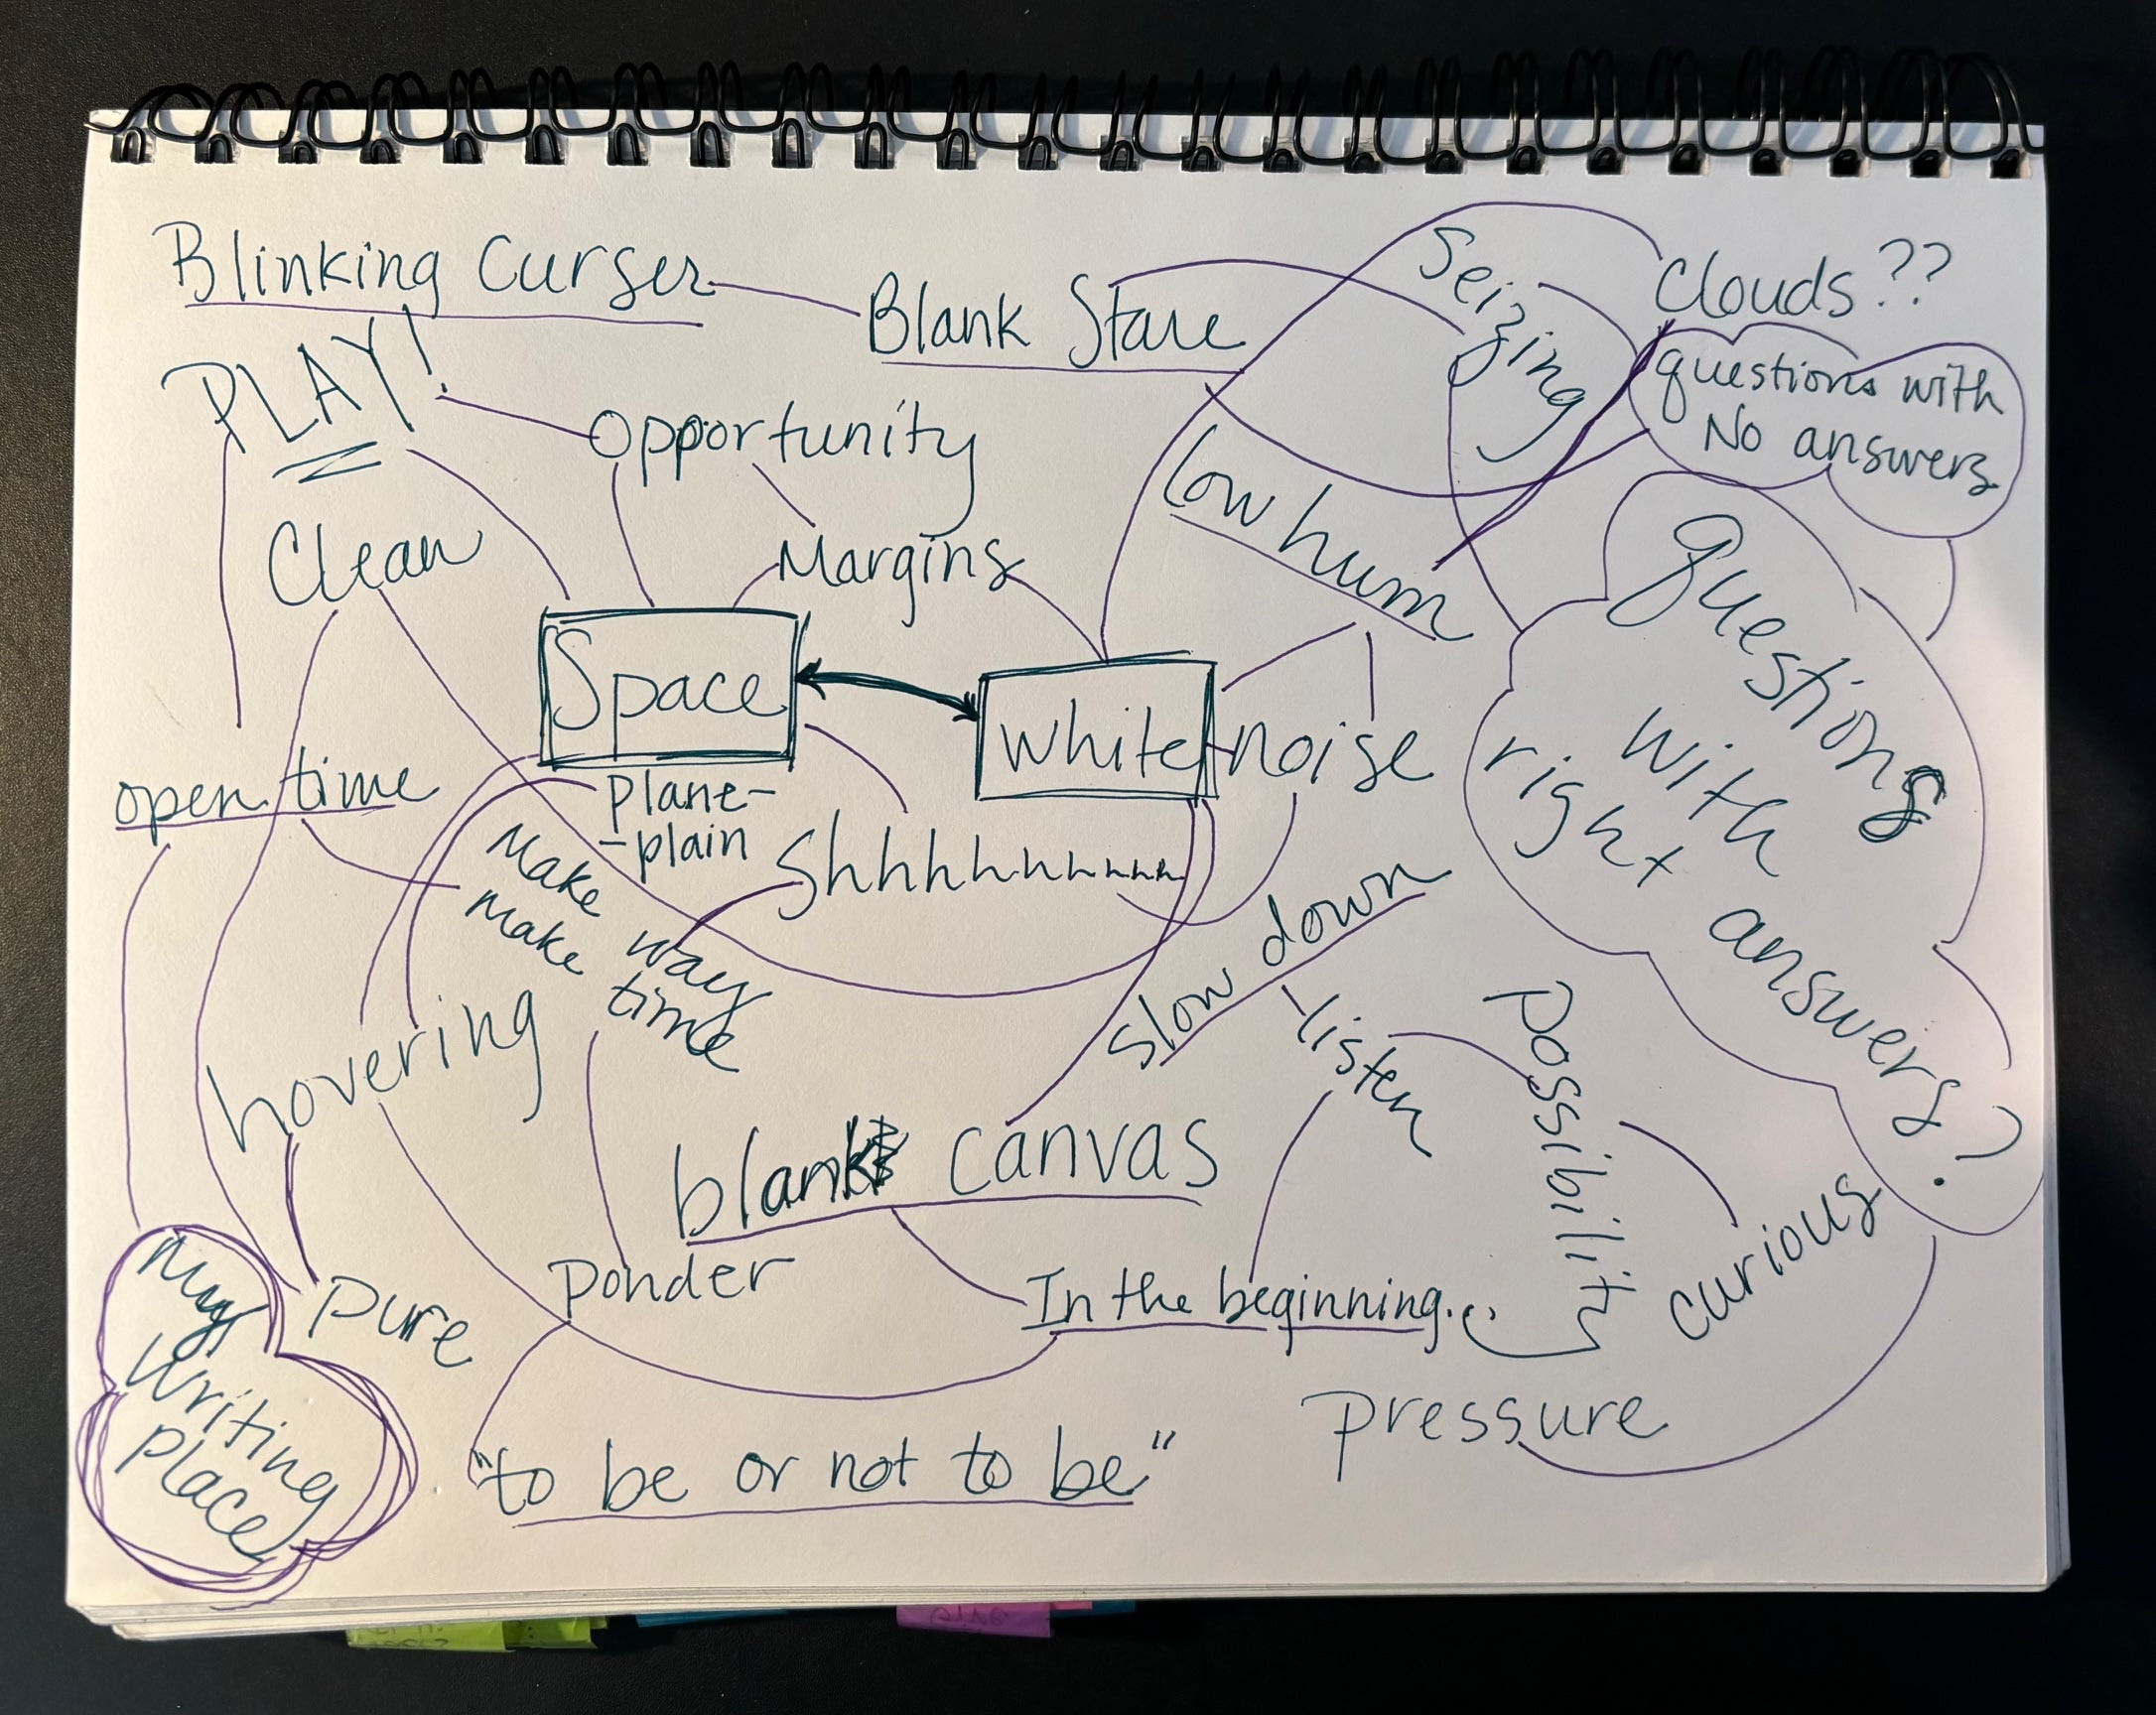 Blinking Curser
Blank Stare
Seizing
Clouds??
PLAY!
Opportunity
questions with
No answers
low hum
Clean
Margins
questions
with
right
answers?
Space
White
noise
open time
plane-
-plain
Make way
Make time
Shhhhhhhhhh
slow down
-listen
Possibility
hovering
blank canvas
curious
Ponder
In the beginning...
My
Writing
place
pure
pressure
"to be or not to be"